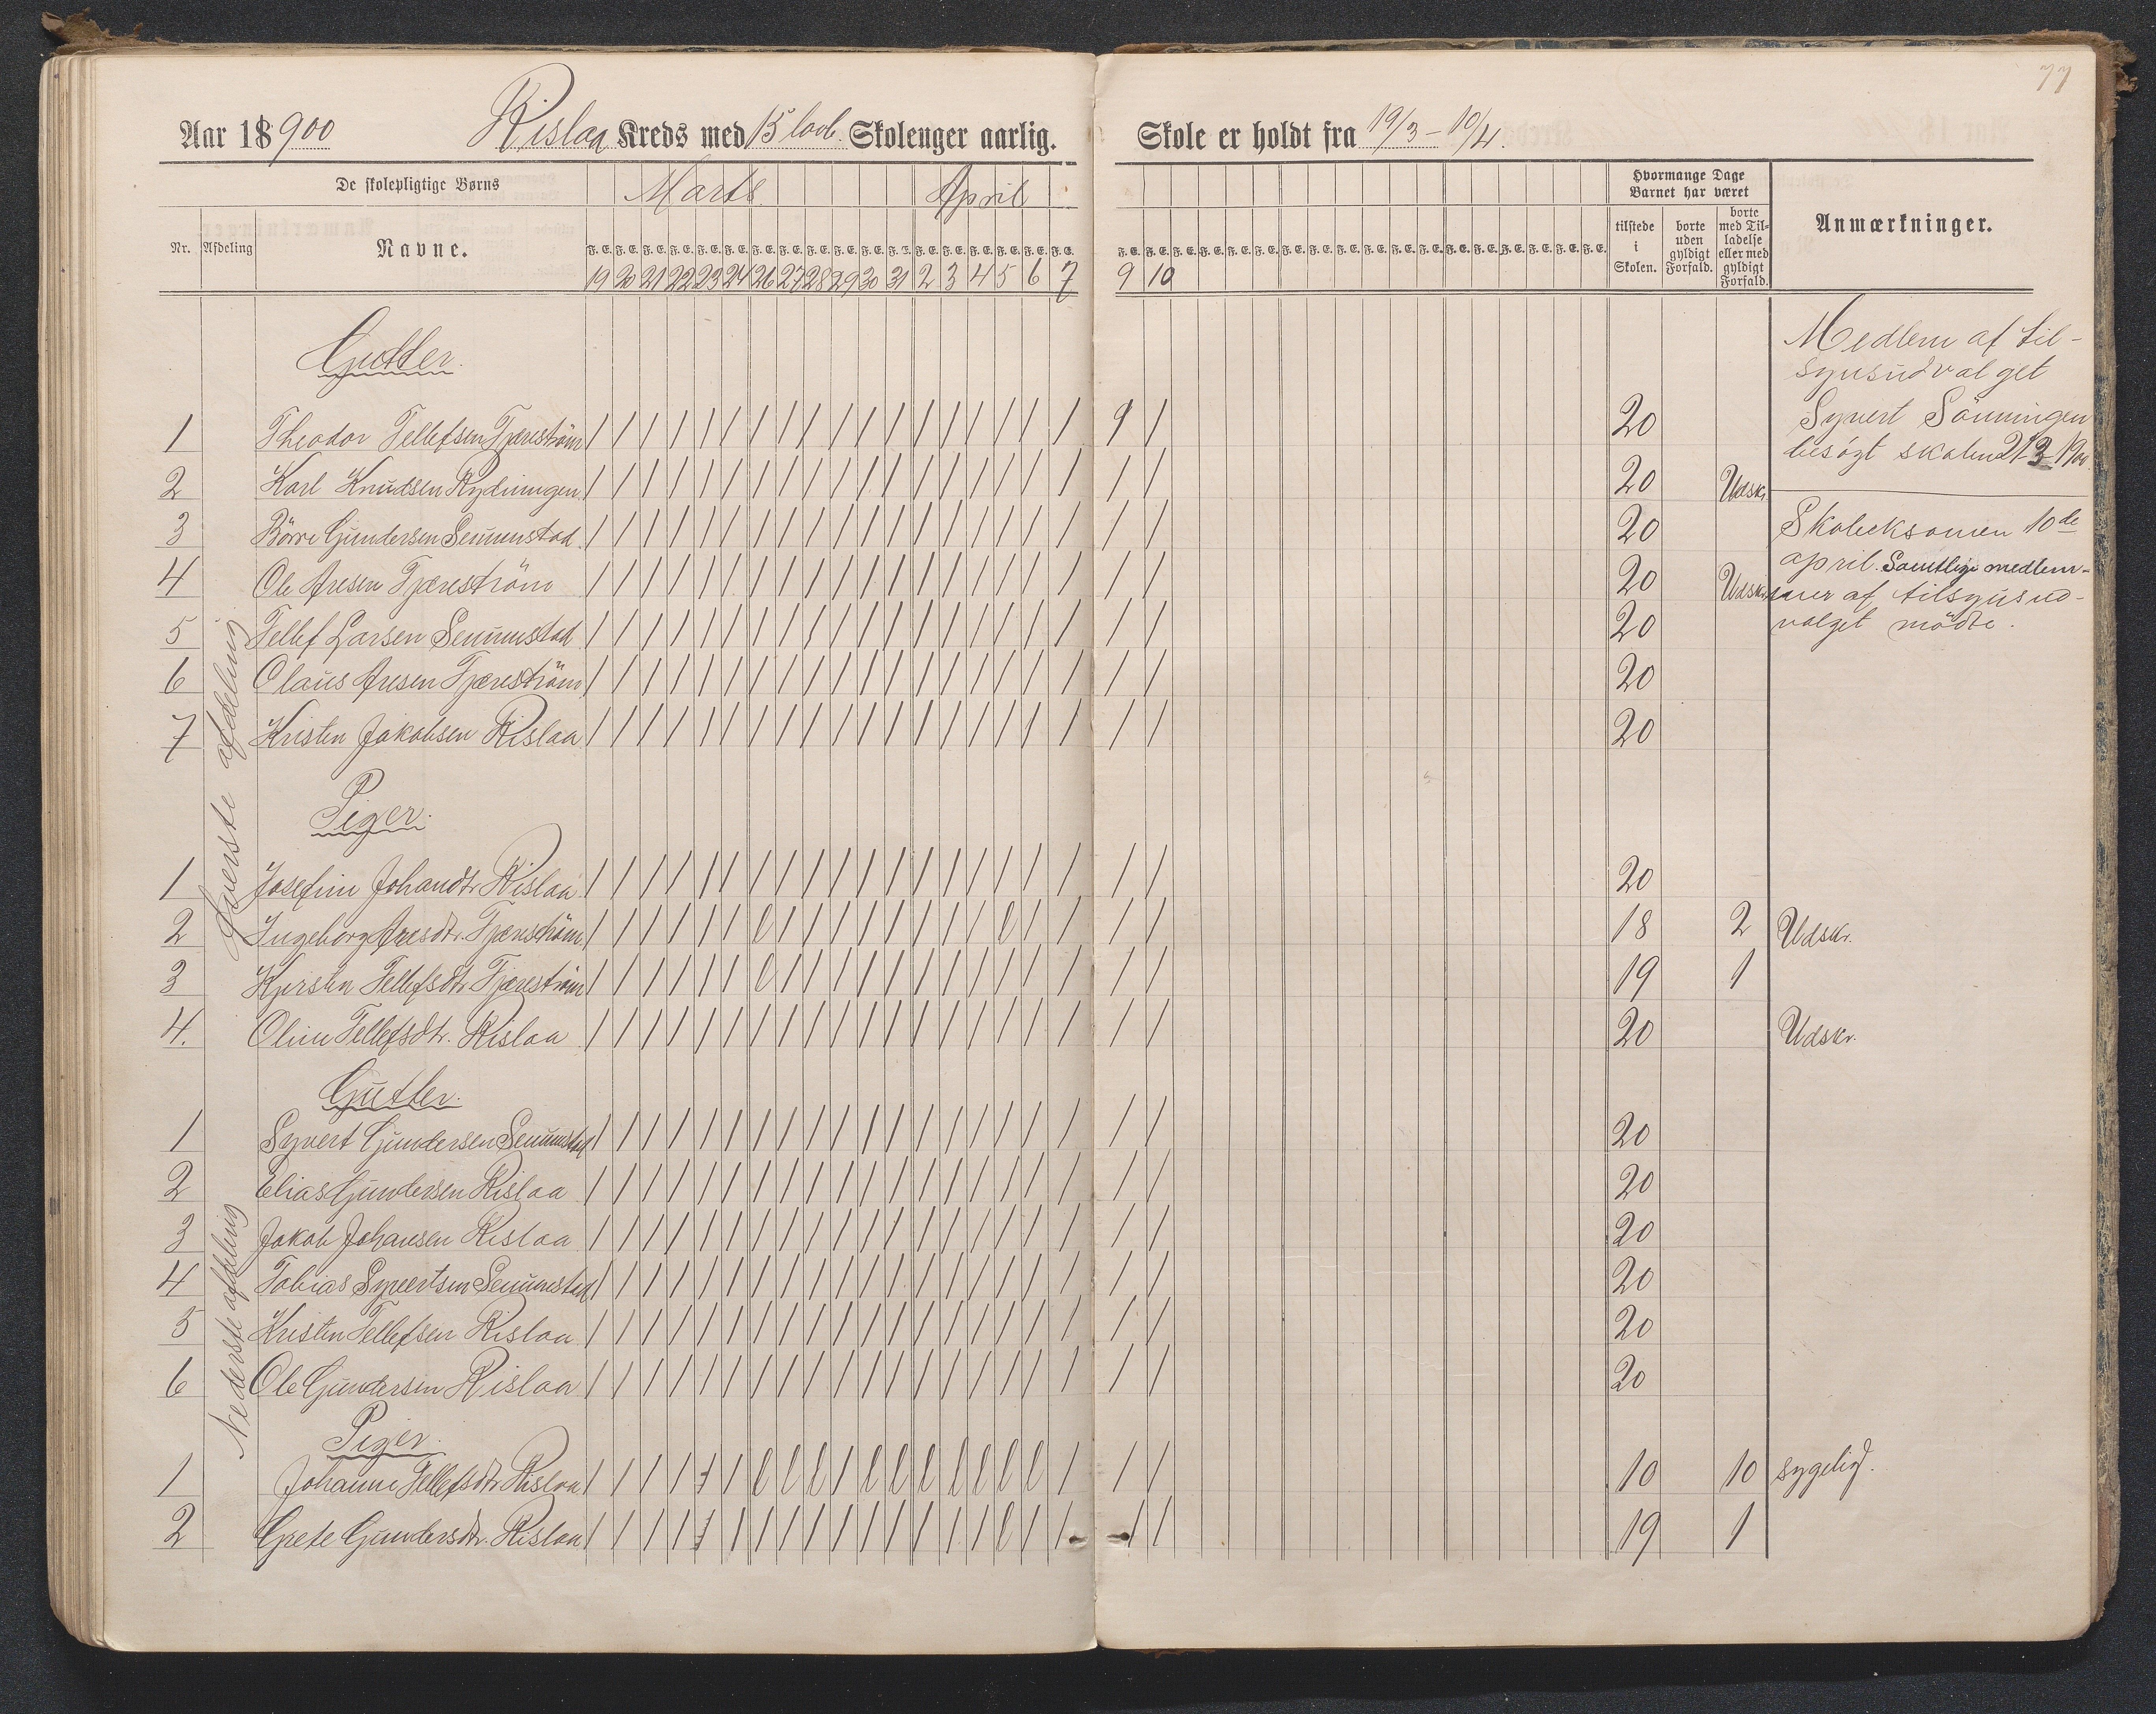 77
Aar 1900 Rislaa Kreds med 15 lovb. Skolenger aarlig. Skole er holdt fra 19/3 – 10/4.
De skolepligtige Børns Marts April Hvormange Dage Barnet har været
Nr. Afdeling Navne. tilstede i Skolen. borte uden gyldigt Forfald. borte med Tilladelse eller med gyldigt Forfald. Anmærkninger.
19 20 21 22 23 24 26 27 28 29 30 31 2 3 4 5 6 7 9 10
Gutter.
Medlem af til-
synsudvalget
Syvert Sönningen
besögt skolen 21-3-1900.
Øverste afdeling
1 Theodor Tellefsen Tjæreström / / / / / / / / / / / / / / / / / / 9 / 20
2 Karl Knudsen Rydningen / / / / / / / / / / / / / / / / / / / / 20 Udskr.
3 Börre Gundersen Senumstad / / / / / / / / / / / / / / / / / / / / 20
Skoleeksamen 10de
april. Samtlige medlem-
mer af tilsynsud-
valget mödte.
4 Ole Aresen Tjæreström / / / / / / / / / / / / / / / / / / / / 20 Udskr.
5 Tellef Larsen Senumstad / / / / / / / / / / / / / / / / / / / / 20
6 Olaus Aresen Tjæreström / / / / / / / / / / / / / / / / / / / / 20
7 Kristen Jakobsen Rislaa / / / / / / / / / / / / / / / / / / / / 20
Piger.
1 Josefine Johansdtr Rislaa / / / / / / / / / / / / / / / / / / / / 20
2 Ingeborg Aresdtr. Tjæreström / / / / / / l / / / / / / / / l / / / / 18 2 Udskr.
3 Kjersten Tellefsdtr Tjæreström / / / / / / l / / / / / / / / / / / / / 19 1
4. Oline Tellefsdtr. Rislaa / / / / / / / / / / / / / / / / / / / / 20 Udskr.
Gutter.
Nederste afdeling
1 Syvert Gundersen Senumstad / / / / / / / / / / / / / / / / / / / / 20
2 Elias Gundersen Rislaa / / / / / / / / / / / / / / / / / / / / 20
3 Jakob Johansen Rislaa / / / / / / / / / / / / / / / / / / / / 20
4 Tobias Syvertsen Senumstad / / / / / / / / / / / / / / / / / / / / 20
5 Kristen Tellefsen Rislaa / / / / / / / / / / / / / / / / / / / / 20
6 Ole Gundersen Rislaa / / / / / / / / / / / / / / / / / / / / 20
Piger.
1 Johanne Tellefsdtr Rislaa / / / / / / l l l / l l l l l l l / / / 10 10 sygelig.
2 Grete Gundersdtr. Rislaa / / / / / / / / / / / / / / / l / / / / 19 1